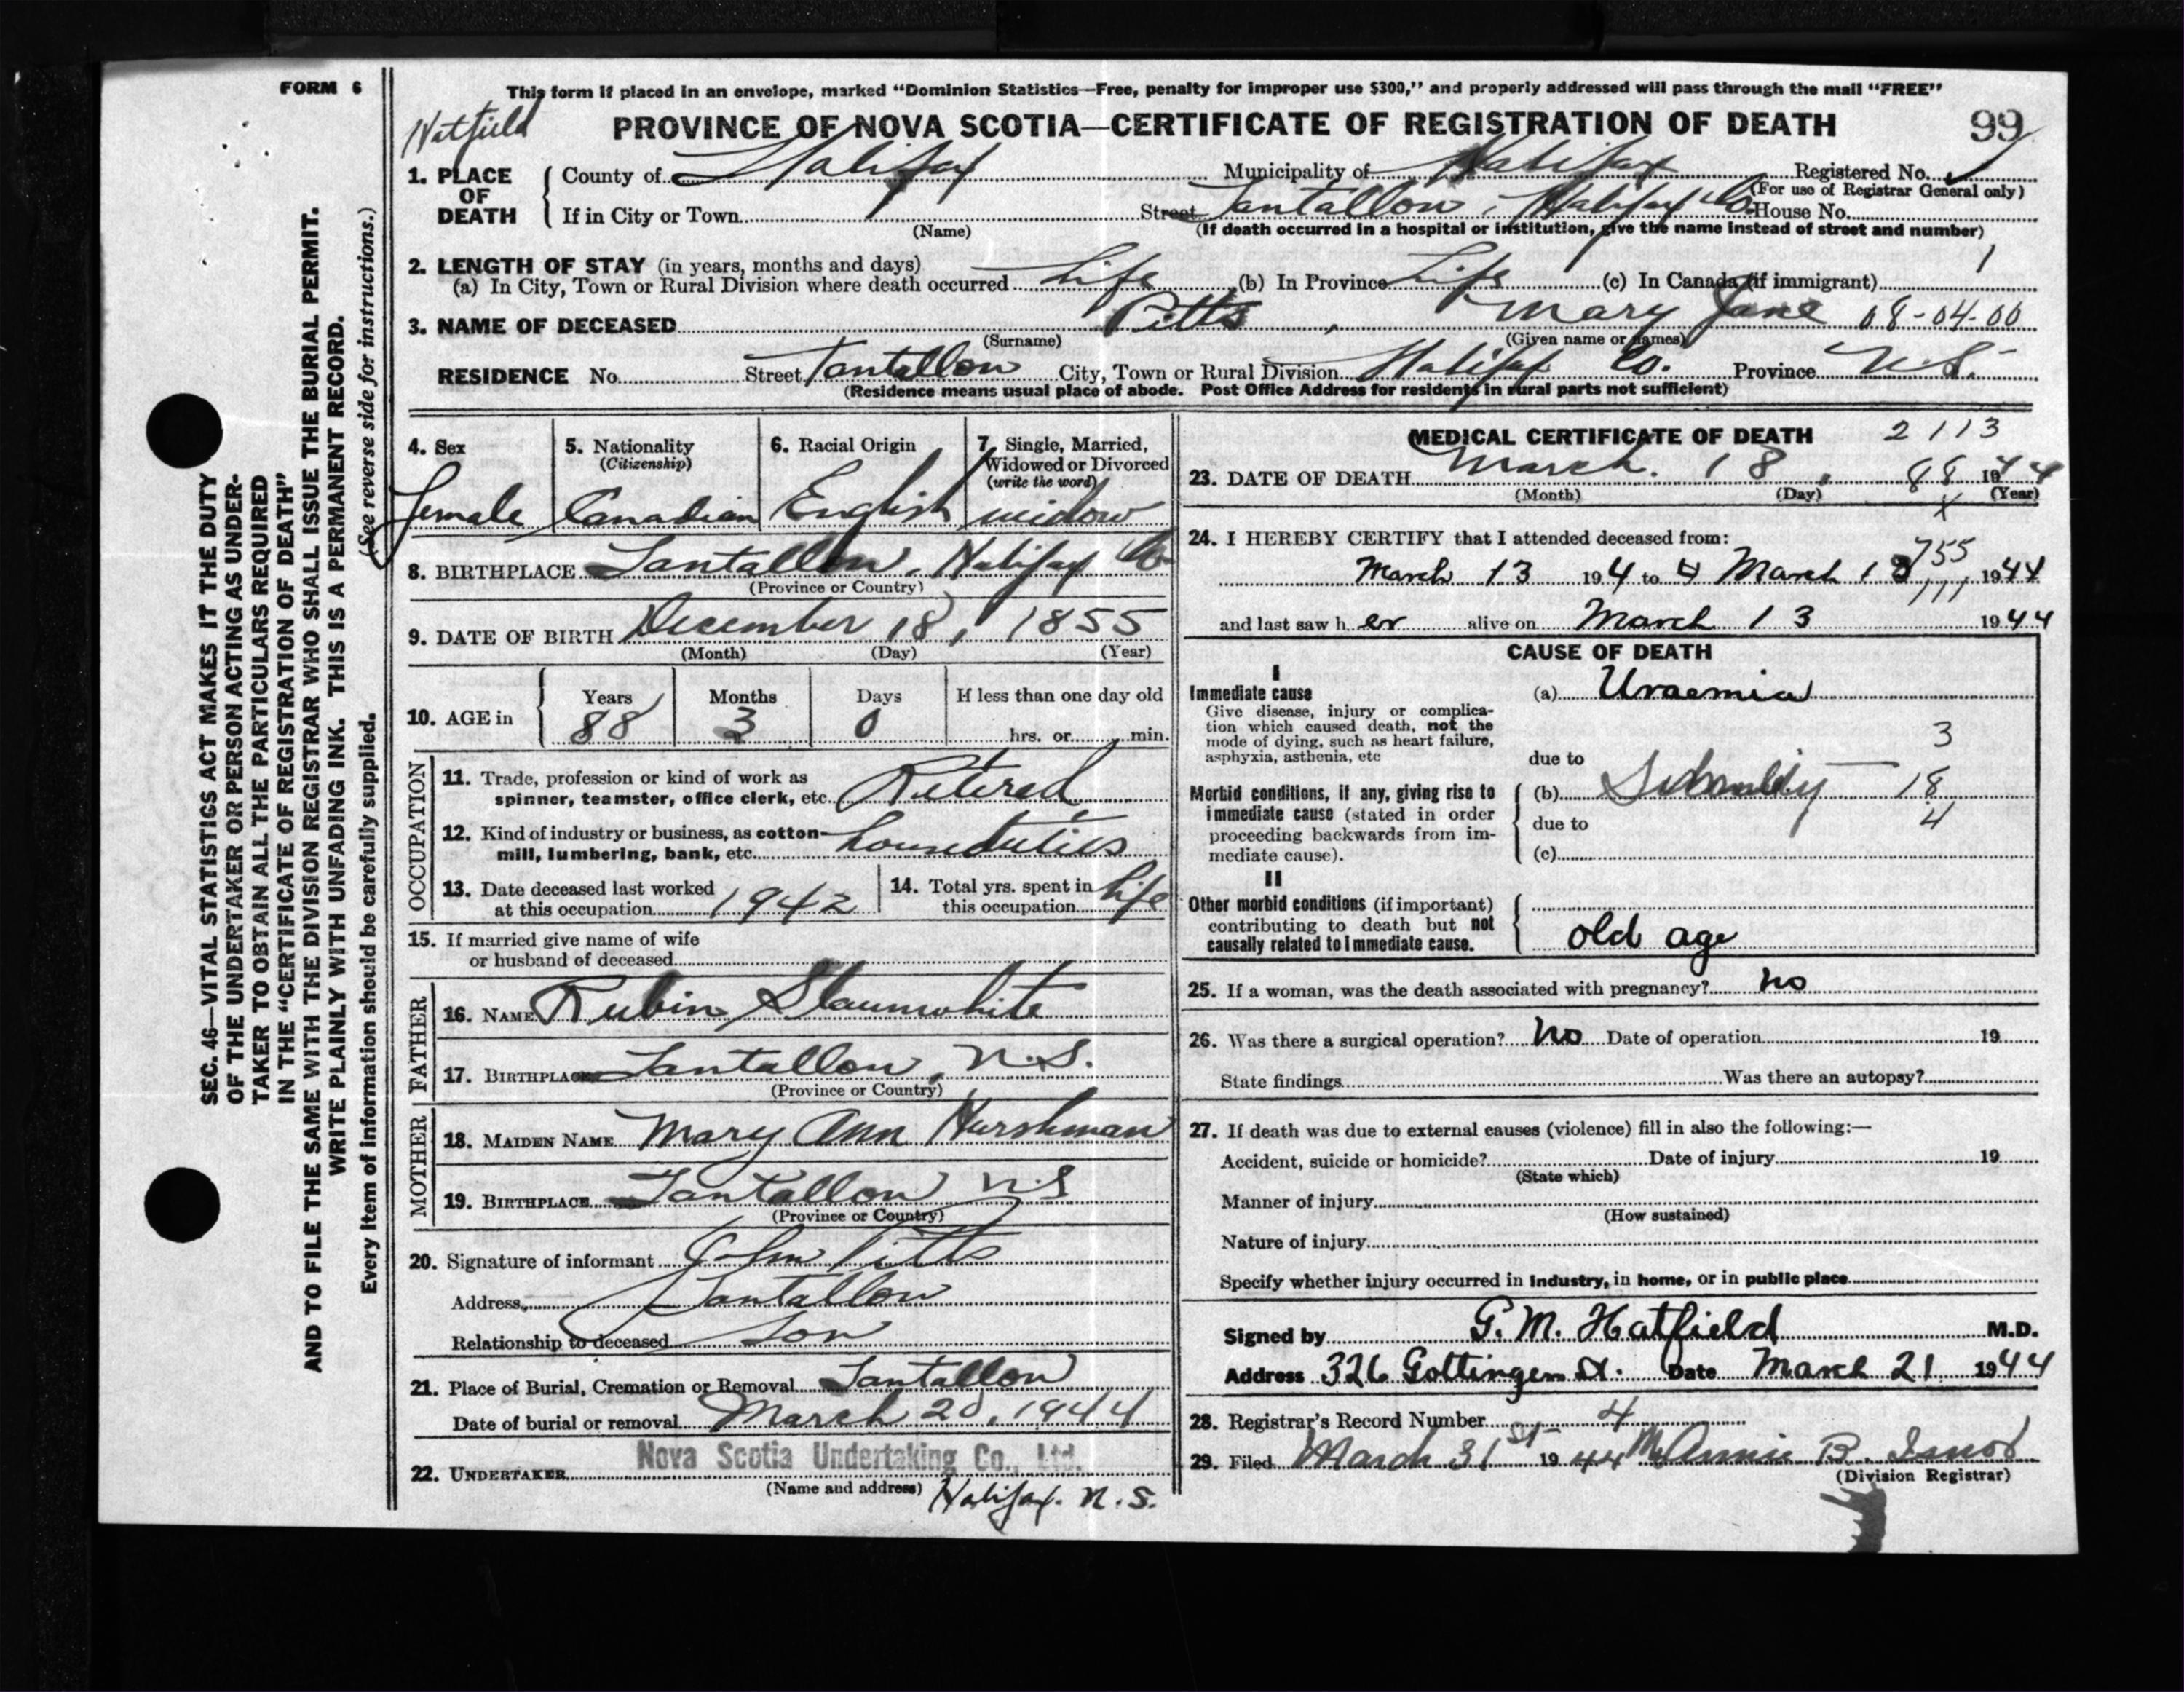 FORM 6
This form if placed in an envelope, marked "Dominion Statistics—Free, penalty for improper use $300," and properly addressed will pass through the mail "FREE"
Hatfield
PROVINCE OF NOVA SCOTIA—CERTIFICATE OF REGISTRATION OF DEATH
99
1. PLACE OF DEATH
County of Halifax Municipality of Halifax Registered No.
(For use of Registrar General only)
If in City or Town Street Tantallon, Halifax Co. House No.
(Name) (If death occurred in a hospital or institution, give the name instead of street and number)
2. LENGTH OF STAY (in years, months and days) 1
(a) In City, Town or Rural Division where death occurred Life (b) In Province Life (c) In Canada (if immigrant)
3. NAME OF DECEASED Pitts, Mary Jane 08-04-00
(Surname) (Given name or names)
RESIDENCE No. Street Tantallon City, Town or Rural Division Halifax Co. Province N.S.
(Residence means usual place of abode. Post Office Address for residents in rural parts not sufficient)
4. Sex
Female
5. Nationality
(Citizenship)
Canadian
6. Racial Origin
English
7. Single, Married,
Widowed or Divorced
(write the word)
widow
8. BIRTHPLACE Tantallon, Halifax Co.
(Province or Country)
9. DATE OF BIRTH December 18, 1855
(Month) (Day) (Year)
10. AGE in
Years Months Days If less than one day old
88 3 0 hrs. or min.
OCCUPATION
11. Trade, profession or kind of work as
spinner, teamster, office clerk, etc. Retired
12. Kind of industry or business, as cotton-
mill, lumbering, bank, etc. houseduties
13. Date deceased last worked
at this occupation 1942
14. Total yrs. spent in
this occupation Life
15. If married give name of wife
or husband of deceased
FATHER
16. NAME Rubin Slaunwhite
17. BIRTHPLACE Tantallon, N.S.
(Province or Country)
MOTHER
18. MAIDEN NAME Mary Ann Hurshman
19. BIRTHPLACE Tantallon N.S
(Province or Country)
20. Signature of informant John Pitts
Address Tantallon
Relationship to deceased Son
21. Place of Burial, Cremation or Removal Tantallon
Date of burial or removal March 20, 1944
22. UNDERTAKER Nova Scotia Undertaking Co., Ltd.
(Name and address) Halifax. N.S.
MEDICAL CERTIFICATE OF DEATH 2113
23. DATE OF DEATH March. 18, 88 1944
(Month) (Day) (Year)
x
24. I HEREBY CERTIFY that I attended deceased from:
755
March 13 194 to 4 March 13 1944
111
and last saw her alive on March 13 1944
CAUSE OF DEATH
I
Immediate cause
Give disease, injury or complica-
tion which caused death, not the
mode of dying, such as heart failure,
asphyxia, asthenia, etc
(a) Uraemia
3
due to
Morbid conditions, if any, giving rise to
immediate cause (stated in order
proceeding backwards from im-
mediate cause).
(b) 18
due to 4
(c)
II
Other morbid conditions (if important)
contributing to death but not
causally related to immediate cause.
old age
25. If a woman, was the death associated with pregnancy? no
26. Was there a surgical operation? no Date of operation 19
State findings Was there an autopsy?
27. If death was due to external causes (violence) fill in also the following:—
Accident, suicide or homicide? Date of injury 19
(State which)
Manner of injury
(How sustained)
Nature of injury
Specify whether injury occurred in industry, in home, or in public place
Signed by G. M. Hatfield M.D.
Address 326 Gottingen St. Date March 21 1944
28. Registrar's Record Number 4
29. Filed March 31st 1944 Annie B.
(Division Registrar)
SEC. 46—VITAL STATISTICS ACT MAKES IT THE DUTY
OF THE UNDERTAKER OR PERSON ACTING AS UNDER-
TAKER TO OBTAIN ALL THE PARTICULARS REQUIRED
IN THE "CERTIFICATE OF REGISTRATION OF DEATH"
AND TO FILE THE SAME WITH THE DIVISION REGISTRAR WHO SHALL ISSUE THE BURIAL PERMIT.
WRITE PLAINLY WITH UNFADING INK. THIS IS A PERMANENT RECORD.
Every item of information should be carefully supplied. (See reverse side for instructions.)